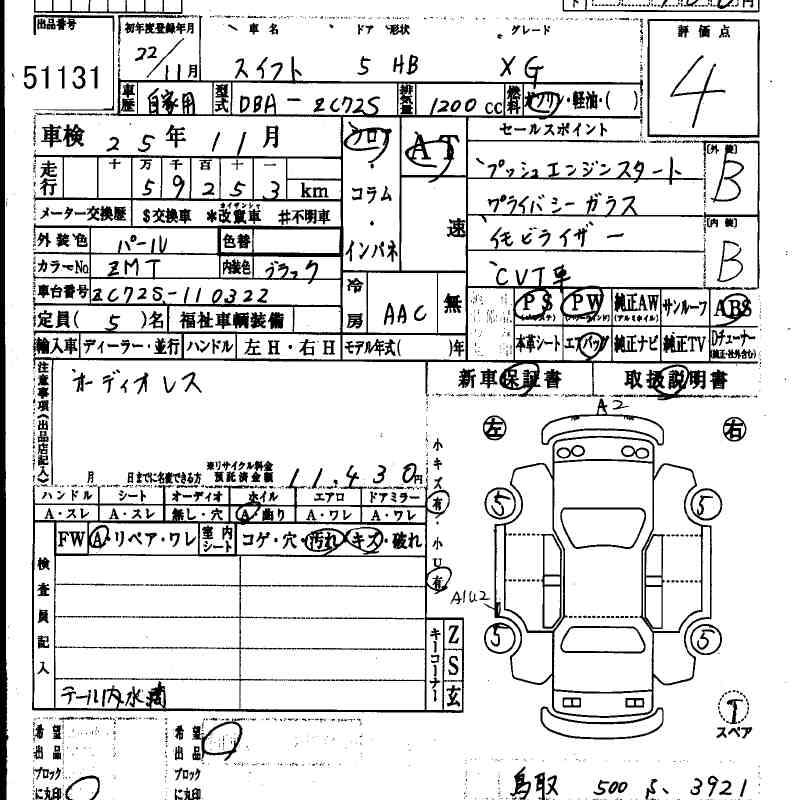 出品番号 初年度登録年月 車名 ドア 形状 グレード 評価点
51131 22/11月 スイフト 5 HB XG 4
車歴 自家用 型式 DBA-ZC72S 排気量 1200cc 燃料 ガソリン・軽油・( )
車検 25年11月 フロア AT セールスポイント
走行 十 万 千 百 十 一
59253 km コラム
プッシュエンジンスタート [外装] B
メーター交換歴 $交換車 *改竄車 #不明車 速 プライバシーガラス
外装色 パール 色替 インパネ イモビライザー [内装] B
カラーNo ZMT 内装色 ブラック CVT車
車台番号 ZC72S-110322 冷房 AAC 無 PS PW 純正AW サンルーフ ABS
(パワステ) (パワーウインド) (アルミホイル)
定員( 5 )名 福祉車輌装備
輸入車 ディーラー・並行 ハンドル 左H・右H モデル年式( )年 本革シート エアバッグ 純正ナビ 純正TV Dチューナー
(純正・社外含む)
新車保証書 取扱説明書
注意事項(出品店記入)
オーディオレス
A2
左 右
月 日までに名変できる方 ※リサイクル料金預託済金額 11,430円
ハンドル シート オーディオ ホイル エアロ ドアミラー
A・スレ A・スレ 無し・穴 A・曲り A・ワレ A・ワレ
小キズ有・小U有
FW A・リペア・ワレ 室内シート コゲ・穴・汚れ・キズ・破れ
5 5
検査員記入
A1U2
5 5
キーコーナー Z S 玄
テール内水滴
T
スペア
希望出品 希望出品
ブロックに丸印 ブロックに丸印
鳥取 500 さ 3921